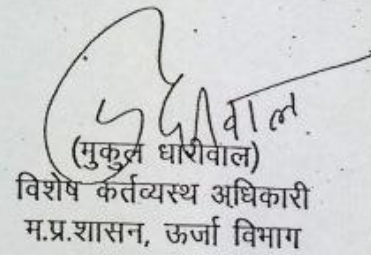 (मुकुल धारीवाल)
विशेष कर्तव्यस्थ अधिकारी
म.प्र.शासन, ऊर्जा विभाग